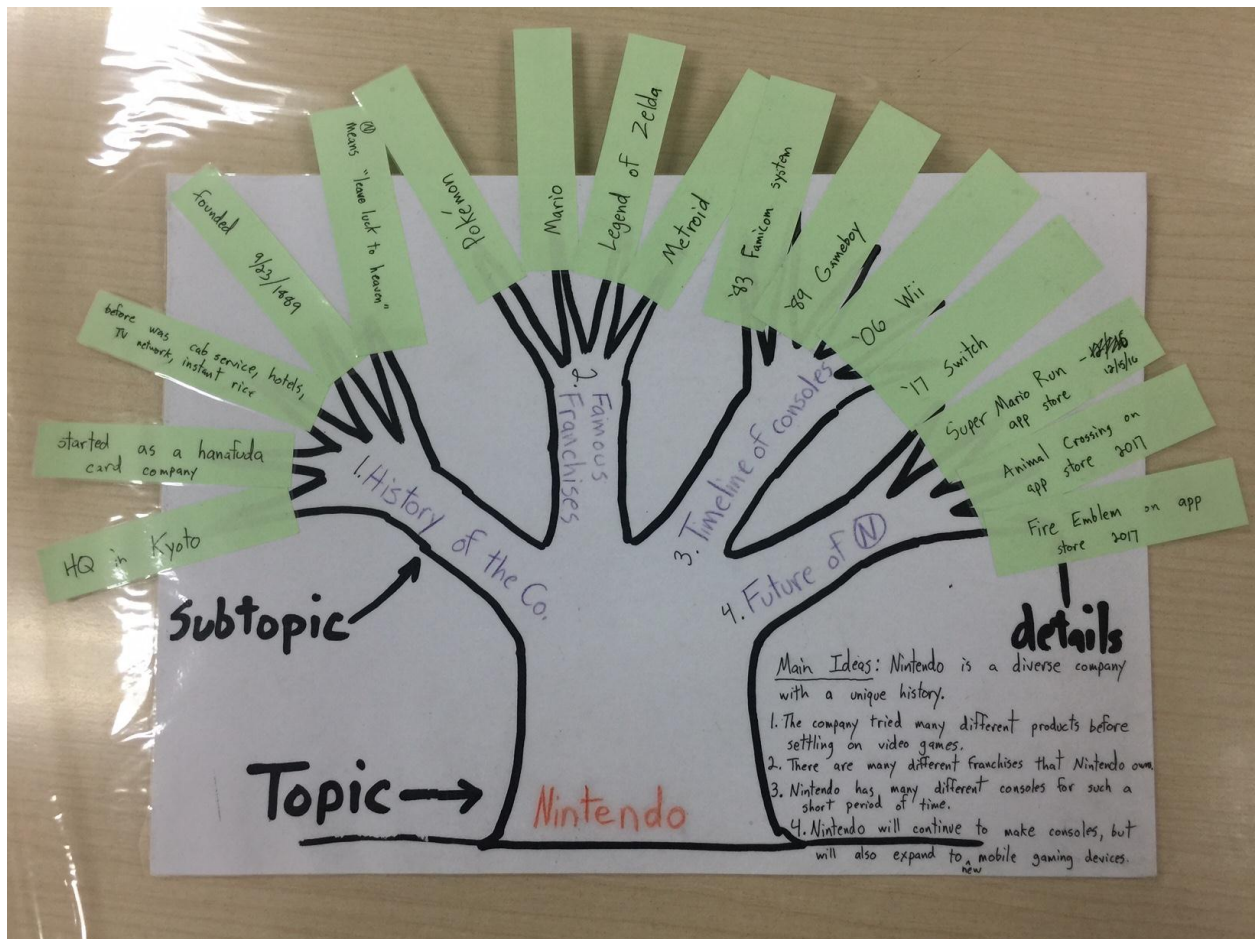 HQ in Kyoto
started as a hanafuda
card company
before was cab service, hotels,
TV network, instant rice
founded 9/23/1889
Ⓝ
means "leave luck to heaven"
Pokémon
Mario
Legend of Zelda
Metroid
'83 Famicom system
'89 Gameboy
'06 Wii
'17 Switch
Super Mario Run -
app store 12/15/16
Animal Crossing on
app store 2017
Fire Emblem on app
store 2017
1. History of the Co.
2. Famous
Franchises
3. Timeline of consoles
4. Future of Ⓝ
Subtopic
details
Topic
Nintendo
Main Ideas: Nintendo is a diverse company
with a unique history.
1. The company tried many different products before
settling on video games.
2. There are many different franchises that Nintendo owns.
3. Nintendo has many different consoles for such a
short period of time.
4. Nintendo will continue to make consoles, but
will also expand to new mobile gaming devices.